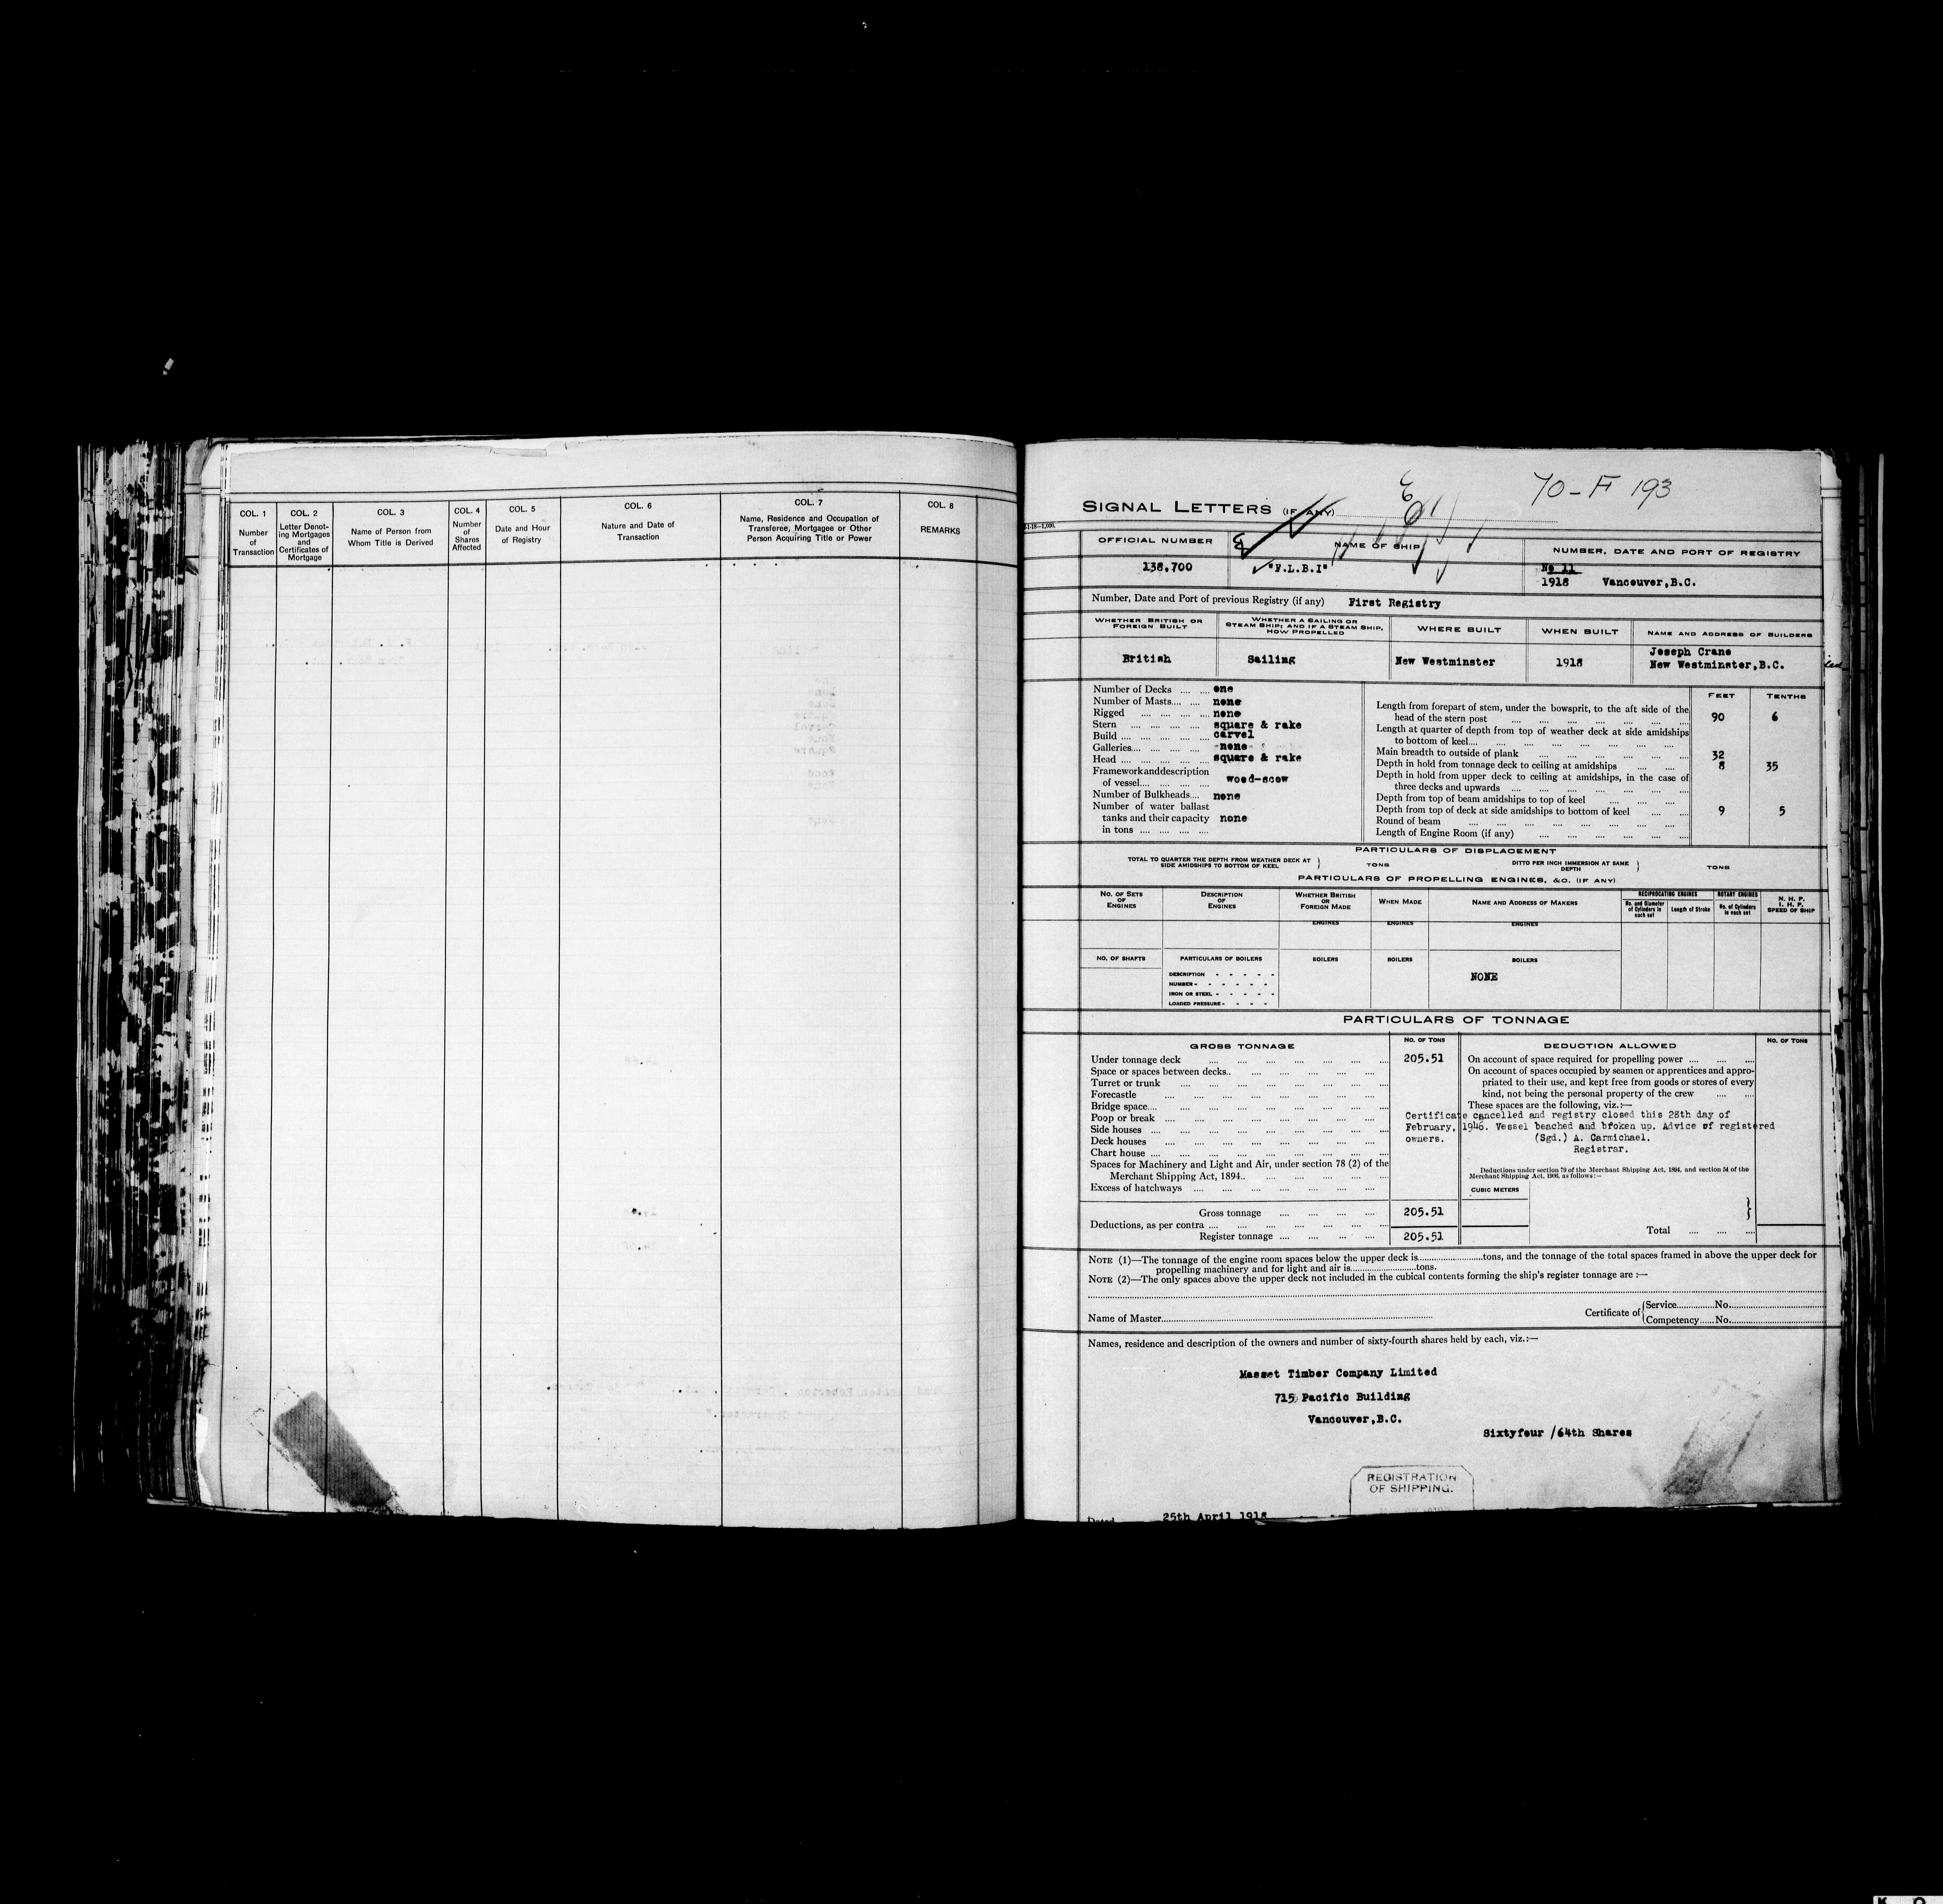 COL. 1
Number
of
Transaction
COL. 2
Letter Denot-
ing Mortgages
and
Certificates of
Mortgage
COL. 3
Name of Person from
Whom Title is Derived
COL. 4
Number
of
Shares
Affected
COL. 5
Date and Hour
of Registry
COL. 6
Nature and Date of
Transaction
COL. 7
Name, Residence and Occupation of
Transferee, Mortgagee or Other
Person Acquiring Title or Power
COL. 8
REMARKS
70-F 193
SIGNAL LETTERS (IF ANY)
OFFICIAL NUMBER
138,700
NAME OF SHIP
"F.L.B.I"
NUMBER, DATE AND PORT OF REGISTRY
No 11
1918 Vancouver,B.C.
Number, Date and Port of previous Registry (if any) First Registry
WHETHER BRITISH OR
FOREIGN BUILT
British
WHETHER A SAILING OR
STEAM SHIP; AND IF A STEAM SHIP,
HOW PROPELLED
Sailing
WHERE BUILT
New Westminster
WHEN BUILT
1918
NAME AND ADDRESS OF BUILDERS
Joseph Crane
New Westminster,B.C.
Number of Decks one
Number of Masts none
Rigged none
Stern square & rake
Build carvel
Galleries none
Head square & rake
Framework and description
of vessel wood-scow
Number of Bulkheads none
Number of water ballast
tanks and their capacity none
in tons
FEET TENTHS
Length from forepart of stem, under the bowsprit, to the aft side of the
head of the stern post 90 6
Length at quarter of depth from top of weather deck at side amidships
to bottom of keel
Main breadth to outside of plank 32
Depth in hold from tonnage deck to ceiling at amidships 8 35
Depth in hold from upper deck to ceiling at amidships, in the case of
three decks and upwards
Depth from top of beam amidships to top of keel
Depth from top of deck at side amidships to bottom of keel 9 5
Round of beam
Length of Engine Room (if any)
PARTICULARS OF DISPLACEMENT
TOTAL TO QUARTER THE DEPTH FROM WEATHER DECK AT
SIDE AMIDSHIPS TO BOTTOM OF KEEL } TONS
DITTO PER INCH IMMERSION AT SAME
DEPTH } TONS
PARTICULARS OF PROPELLING ENGINES, &C. (IF ANY)
NO. OF SETS
OF
ENGINES
DESCRIPTION
OF
ENGINES
WHETHER BRITISH
OR
FOREIGN MADE
WHEN MADE
NAME AND ADDRESS OF MAKERS
RECIPROCATING ENGINES
No. and Diameter
of Cylinders in
each set
Length of Stroke
ROTARY ENGINES
No. of Cylinders
in each set
N. H. P.
I. H. P.
SPEED OF SHIP
ENGINES ENGINES ENGINES
NO. OF SHAFTS
PARTICULARS OF BOILERS
BOILERS BOILERS BOILERS
DESCRIPTION
NUMBER
IRON OR STEEL
LOADED PRESSURE
NONE
PARTICULARS OF TONNAGE
GROSS TONNAGE
NO. OF TONS
Under tonnage deck 205.51
Space or spaces between decks
Turret or trunk
Forecastle
Bridge space
Poop or break
Side houses
Deck houses
Chart house
Spaces for Machinery and Light and Air, under section 78 (2) of the
Merchant Shipping Act, 1894
Excess of hatchways
Gross tonnage 205.51
Deductions, as per contra
Register tonnage 205.51
DEDUCTION ALLOWED
NO. OF TONS
On account of space required for propelling power
On account of spaces occupied by seamen or apprentices and appro-
priated to their use, and kept free from goods or stores of every
kind, not being the personal property of the crew
These spaces are the following, viz.:—
Certificate cancelled and registry closed this 28th day of
February, 1946. Vessel beached and broken up. Advice of registered
owners. (Sgd.) A. Carmichael.
Registrar.
Deductions under section 79 of the Merchant Shipping Act, 1894, and section 54 of the
Merchant Shipping Act, 1906, as follows:—
CUBIC METERS
Total
NOTE (1)—The tonnage of the engine room spaces below the upper deck is tons, and the tonnage of the total spaces framed in above the upper deck for
propelling machinery and for light and air is tons.
NOTE (2)—The only spaces above the upper deck not included in the cubical contents forming the ship's register tonnage are :—
Name of Master
Certificate of
Service No.
Competency No.
Names, residence and description of the owners and number of sixty-fourth shares held by each, viz.:—
Masset Timber Company Limited
715 Pacific Building
Vancouver,B.C.
Sixtyfour /64th Shares
REGISTRATION
OF SHIPPING.
Dated 25th April 1918